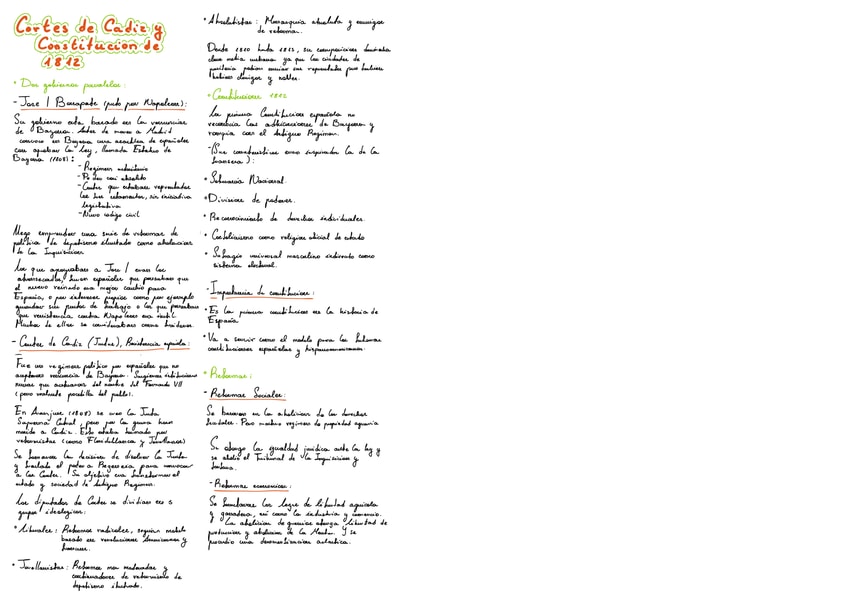 Cortes de Cadiz y
Constitucion de
1812
• Dos gobiernos paralelos:
- Jose I Bonaparte (puesto por Napoleon):
Su gobierno esta basado en las renuncias
de Bayona. Antes de a Madrid
convoco en Bayona una asamblea de españoles
para aprobar la ley, llamada Estatuto de
Bayona (1808):
- Regimen
- Poder casi absoluto
- Cortes que estaban representadas
los tres estamentos, sin iniciativa
legislativa
- Nuevo codigo civil
emprender una serie de reformas de
politica de despotismo ilustrado como abolicion
de la Inquisicion
Los que apoyaban a Jose I eran los
afrancesados, eran españoles que pensaban que
el nuevo reinado era mejor cambio para
España, o por intereses propios como por ejemplo
guardar sus puestos de trabajo o los que pensaban
que resistencia contra Napoleon era inutil.
Muchos de ellos se consideraban como traidores.
- Cortes de Cadiz (Juntas), Resistencia española:
Fue un regimen politico por españoles que no
aceptaron renuncias de Bayona. Surgieron instituciones
nuevas que actuaron del nombre del Fernando VII
(pero realmente procedia del pueblo).
En Aranjuez (1808) se creo la Junta
Suprema Central, pero por la guerra
a Cadiz. Esto estaba formado por
reformistas (como Floridablanca y Jovellanos)
Se tomaron la decision de disolver la Junta
y traslado el poder a Regencia para convocar
a las Cortes. Su objetivo era transformar el
estado y sociedad de Antiguo Regimen.
Los diputados de Cortes se dividian en 3
grupos ideologicos:
• Liberales: Reformas radicales, seguian modelo
basado en revoluciones Americana y
francesa.
• Jovellanistas: Reformas mas moderadas y
continuadores de reformismo de
despotismo ilustrado.
• Absolutistas: Monarquia absoluta y enemigos
de reformas.
Desde 1810 hasta 1812, su composicion dominaba
clase media urbana ya que las ciudades de
podian enviar sus representantes pero tambien
habian clerigos y nobles.
• Constitucion 1812
La primera Constitucion española no
reconocia las abdicaciones de Bayona y
rompia con el Antiguo Regimen.
- (Sus caracteristicas eran inspiradas la de la
francesa):
• Soberania Nacional.
• Division de poderes.
• Reconocimiento de derechos individuales.
• Catolicismo como religion oficial de estado
• Sufragio universal masculino indirecto como
sistema electoral.
- Importancia de constitucion:
• Es la primera constitucion en la historia de
España
• Va a servir como el modelo para las futuras
constituciones españolas y hispanoamericanas.
• Reformas:
- Reformas Sociales:
Se basaron en la abolicion de los derechos
feudales. Pero mantuvo regimen de propiedad agraria
Se otorgo la igualdad juridica ante la ley y
se abolio el Tribunal de la Inquisicion y
tortura.
- Reformas economicas:
Se fomentaron las leyes de libertad agricola
y ganadera, asi como la industria y comercio.
La abolicion de gremios otorga libertad de
produccion y abolicion de la Mesta. Y se
produjo una desamortizacion eclesiastica.